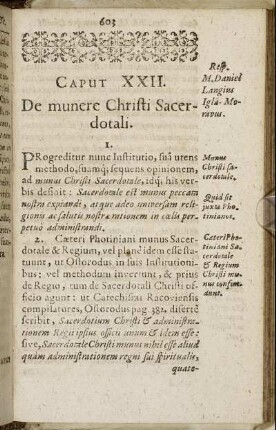 603
CAPUT XXII.
De munere Christi Sacer-
dotali.
Resp.
M. Daniel
Langius
Igla-Mo-
ravus.
1.
PRogreditur nunc Institutio, suâ utens
methodo, suamq; sequens opinionem,
ad munus Christi Sacerdotale, idq; his ver-
bis definit: Sacerdotale est munus peccata
nostra expiandi, atque adeò universam reli-
gionis ac salutis nostræ rationem in cælis per-
petuò administrandi.
Munus
Christi sa-
cerdotale,
Quid sit
juxta Pho-
tinianos.
2. Cæteri Photiniani munus Sacer-
dotale & Regium, vel planè idem esse sta-
tuunt, ut Ostorodus in suis Institutioni-
bus: vel methodum invertunt, & priùs de
Regio, tum de Sacerdotali Christi of-
ficio agunt: ut Catechismi Racoviensis
compilatores. Ostorodus pag. 382. disertè
scribit, Sacerdotium Christi & administra-
tionem Regii ipsius officii unum & idem esse:
sive, Sacerdotale Christi munus nihil esse aliud
quàm administrationem regni sui spiritualis,
Cæteri Pho-
tiniani Sa-
cerdotale
& Regium
Christi mu-
nus confun-
dunt.
quate-